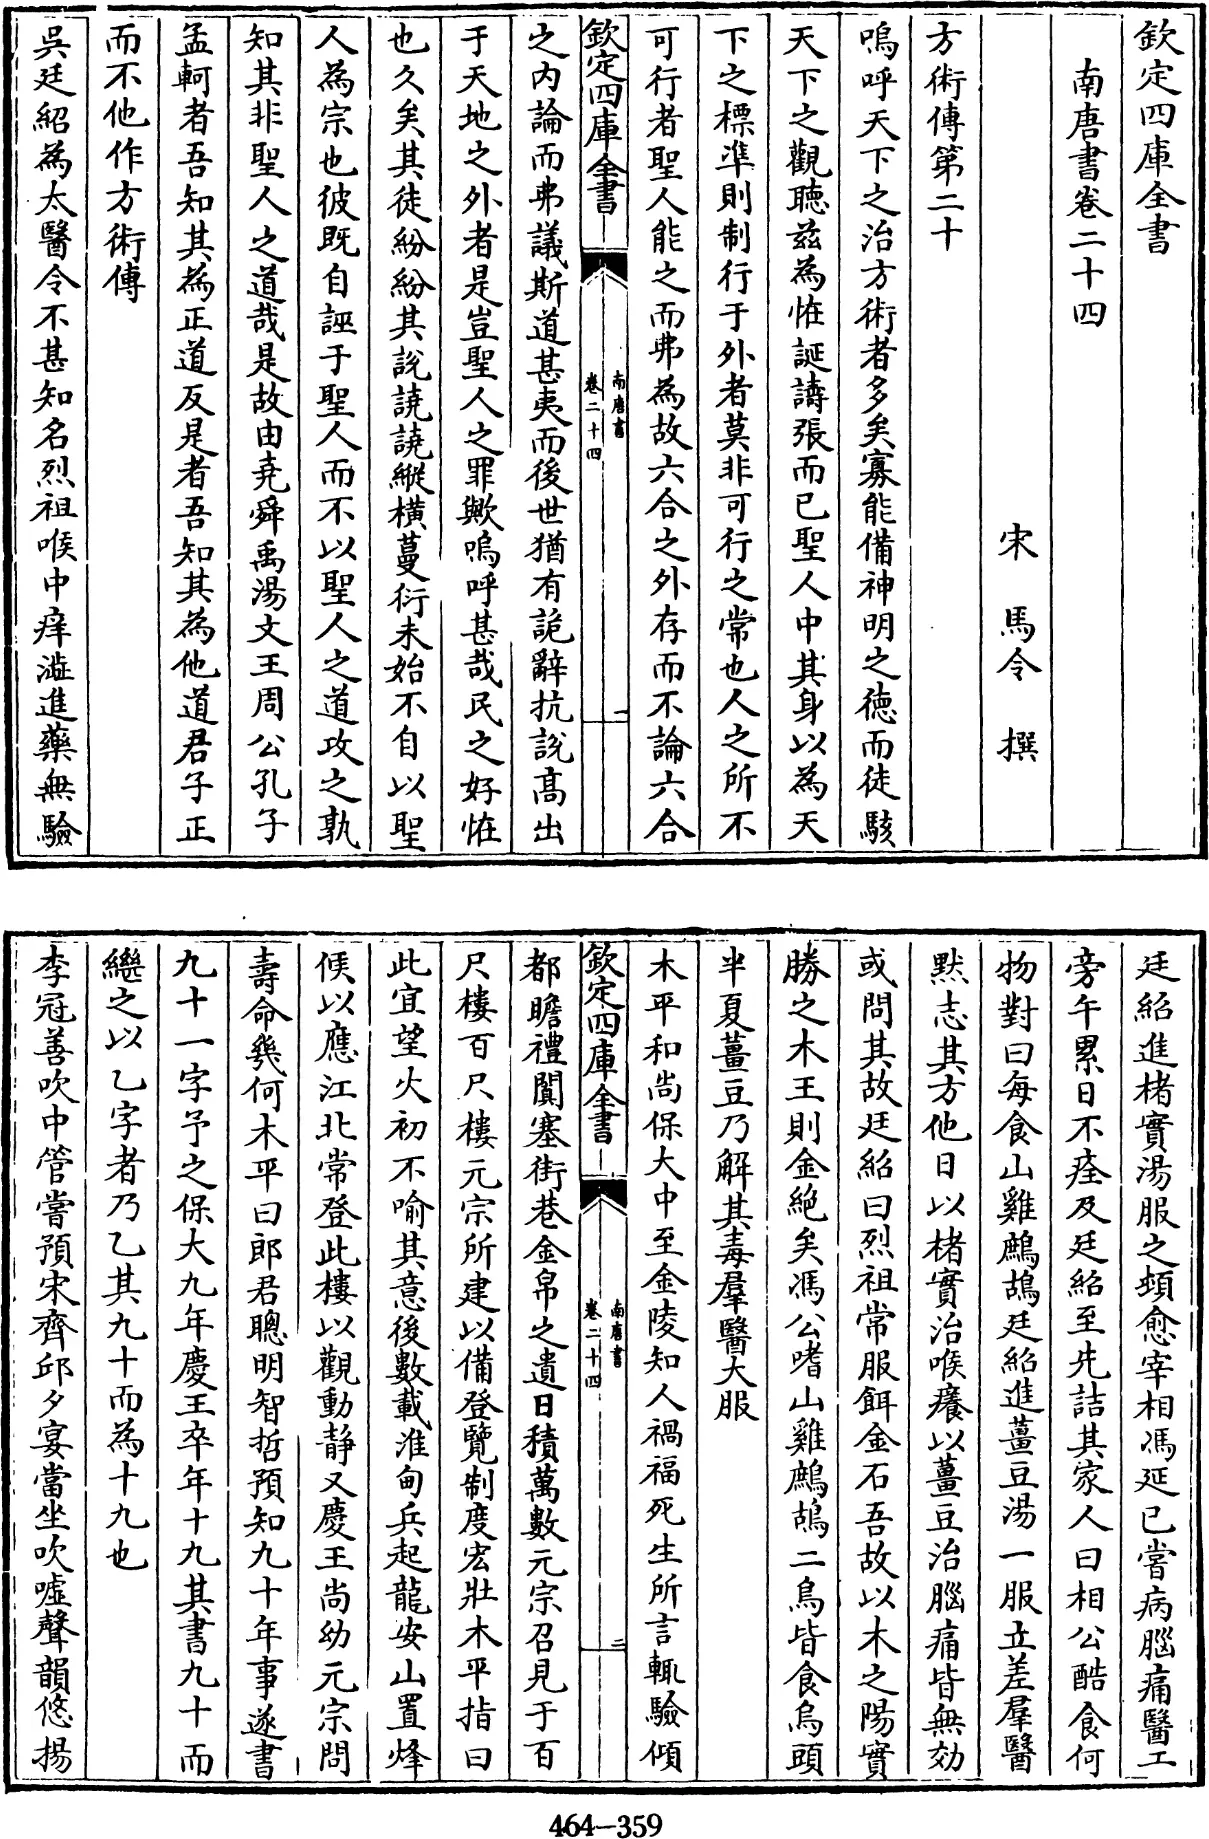 欽定四庫全書
南唐書卷二十四
宋 馬令 撰
方術傳第二十
嗚呼天下之治方術者多矣寡能備神明之德而徒駭
天下之觀聽兹為恠誕譸張而已聖人中其身以為天
下之標準則制行于外者莫非可行之常也人之所不
可行者聖人能之而弗為故六合之外存而不論六合
欽定四庫全書
南唐書
卷二十四
一
之内論而弗議斯道甚夷而後世猶有詭辭抗説髙出
于天地之外者是豈聖人之罪歟嗚呼甚哉民之好恠
也久矣其徒紛紛其説譊譊縱横蔓衍未始不自以聖
人為宗也彼既自誣于聖人而不以聖人之道攻之孰
知其非聖人之道哉是故由堯舜禹湯文王周公孔子
孟軻者吾知其為正道反是者吾知其為他道君子正
而不他作方術傳
吳廷紹為太醫令不甚知名烈祖喉中痒澁進藥無驗
廷紹進楮實湯服之頓愈宰相馮延已嘗病腦痛醫工
旁午累日不痊及廷紹至先詰其家人曰相公酷食何
物對曰每食山雞鷓鴣廷紹進薑豆湯一服立差羣醫
默志其方他日以楮實治喉癢以薑豆治腦痛皆無効
或問其故廷紹曰烈祖常服餌金石吾故以木之陽實
勝之木王則金絶矣馮公嗜山雞鷓鴣二鳥皆食烏頭
半夏薑豆乃解其毒羣醫大服
木平和尚保大中至金陵知人禍福死生所言輒驗傾
欽定四庫全書
南唐書
卷二十四
二
都瞻禮闐塞街巷金帛之遺日積萬數元宗召見于百
尺樓百尺樓元宗所建以備登覽制度宏壯木平指曰
此宜望火初不喻其意後數載淮甸兵起龍安山置烽
候以應江北常登此樓以觀動静又慶王尚幼元宗問
壽命幾何木平曰郎君聰明智哲預知九十年事遂書
九十一字予之保大九年慶王卒年十九其書九十而
繼之以乙字者乃乙其九十而為十九也
李冠善吹中管嘗預宋齊邱夕宴當坐吹嘘聲韻悠揚
464-359